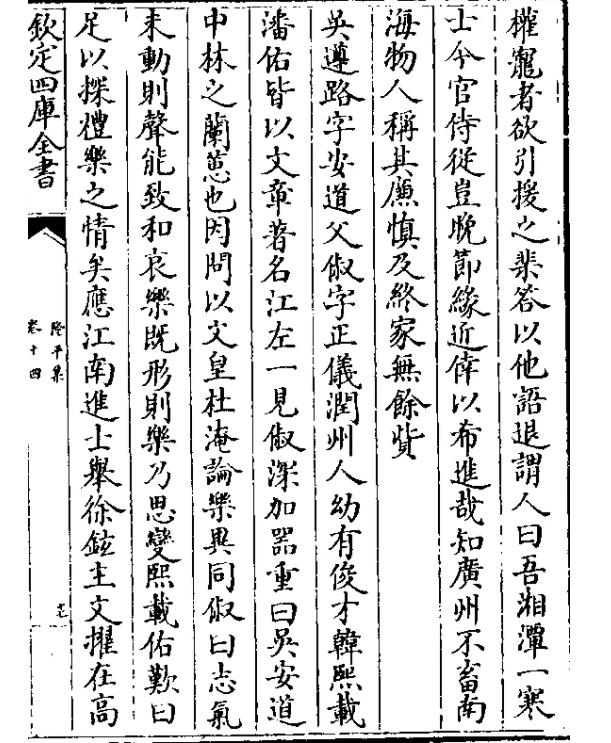 權寵者欲引援之棐答以他語退謂人曰吾湘潭一寒
士今官侍從豈晚節緣近倖以希進哉知廣州不畜南
海物人稱其廉慎及終家無餘貲
吳遵路字安道父俶字正儀潤州人幼有俊才韓熙載
潘佑皆以文章著名江左一見俶深加器重曰吳安道
中林之蘭蕙也因問以文皇杜淹論樂異同俶曰志氣
未動則聲能致和哀樂既形則樂乃思變熙載佑歎曰
足以探禮樂之情矣應江南進士舉徐鉉主文擢在高
欽定四庫全書
隆平集
卷十四